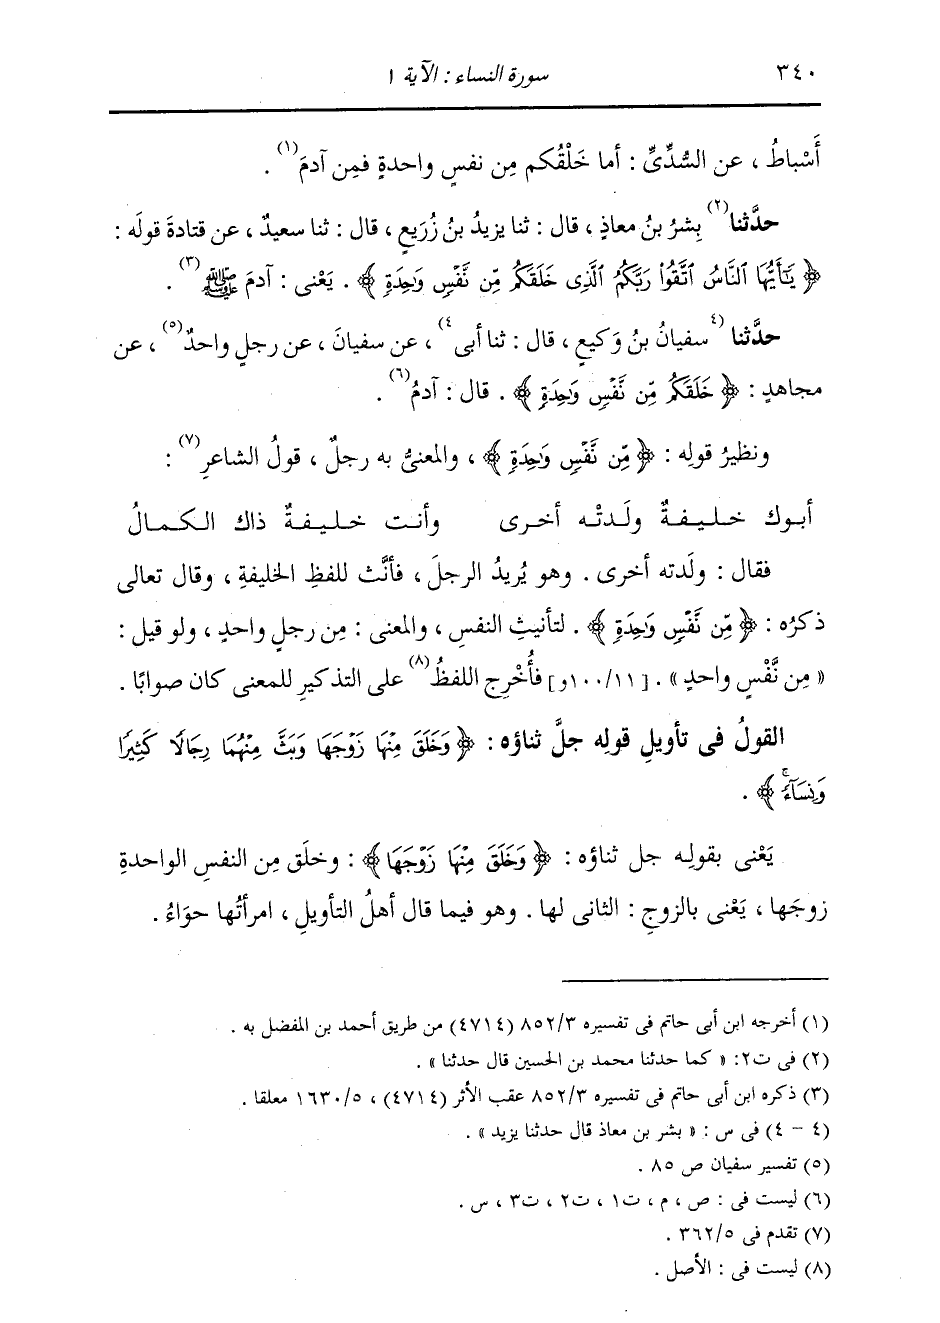 ٣٤٠
سورة النساء : الآية ١
أَسْباطُ ، عن السُّدِّىِّ : أما خَلْقُكم مِن نفسٍ واحدةٍ فمِن آدمَ(١) .
حدَّثنا(٢) بِشرُ بنُ معاذٍ ، قال : ثنا يزيدُ بنُ زُرَيعٍ ، قال : ثنا سعيدٌ ، عن قتادةَ قولَه :
﴿ يَٰٓأَيُّهَا ٱلنَّاسُ ٱتَّقُوا۟ رَبَّكُمُ ٱلَّذِى خَلَقَكُم مِّن نَّفْسٍ وَٰحِدَةٍ ﴾ . يَعْنى : آدمَ ﷺ(٣) .
حدَّثنا (٤سفيانُ بنُ وَكيعٍ ، قال : ثنا أبى٤) ، عن سفيانَ ، عن رجلٍ واحدٌ(٥) ، عن
مجاهدٍ : ﴿ خَلَقَكُم مِّن نَّفْسٍ وَٰحِدَةٍ ﴾ . قال : آدمُ(٦) .
ونظيرُ قولِه : ﴿ مِّن نَّفْسٍ وَٰحِدَةٍ ﴾ ، والمعنىُّ به رجلٌ ، قولُ الشاعرِ(٧) :
أبوك خليفةٌ ولَدتْه أخرى وأنت خليفةٌ ذاك الكمالُ
فقال : ولَدته أخرى . وهو يُريدُ الرجلَ ، فأنَّث للفظِ الخليفةِ ، وقال تعالى
ذكرُه : ﴿ مِّن نَّفْسٍ وَٰحِدَةٍ ﴾ . لتأنيثِ النفسِ ، والمعنى : مِن رجلٍ واحدٍ ، ولو قيل :
« مِن نَّفْسٍ واحدٍ » . [١١/ ١٠٠و] فأُخْرِج اللفظُ(٨) على التذكيرِ للمعنى كان صوابًا .
القولُ فى تأويلِ قولِه جلَّ ثناؤه : ﴿ وَخَلَقَ مِنْهَا زَوْجَهَا وَبَثَّ مِنْهُمَا رِجَالًا كَثِيرًا
وَنِسَآءً ۚ ﴾ .
يَعْنى بقولِه جل ثناؤه : ﴿ وَخَلَقَ مِنْهَا زَوْجَهَا ﴾ : وخلَق مِن النفسِ الواحدةِ
زوجَها ، يَعْنى بالزوجِ : الثانى لها . وهو فيما قال أهلُ التأويلِ ، امرأتُها حوّاءُ .
(١) أخرجه ابن أبى حاتم فى تفسيره ٨٥٢/٣ (٤٧١٤) من طريق أحمد بن المفضل به .
(٢) فى ت٢: « كما حدثنا محمد بن الحسين قال حدثنا » .
(٣) ذكره ابن أبى حاتم فى تفسيره ٨٥٢/٣ عقب الأثر (٤٧١٤) ، ١٦٣٠/٥ معلقا .
(٤ - ٤) فى س : « بشر بن معاذ قال حدثنا يزيد » .
(٥) تفسير سفيان ص ٨٥ .
(٦) ليست فى : ص ، م ، ت١ ، ت٢ ، ت٣ ، س .
(٧) تقدم فى ٣٦٢/٥ .
(٨) ليست فى : الأصل .